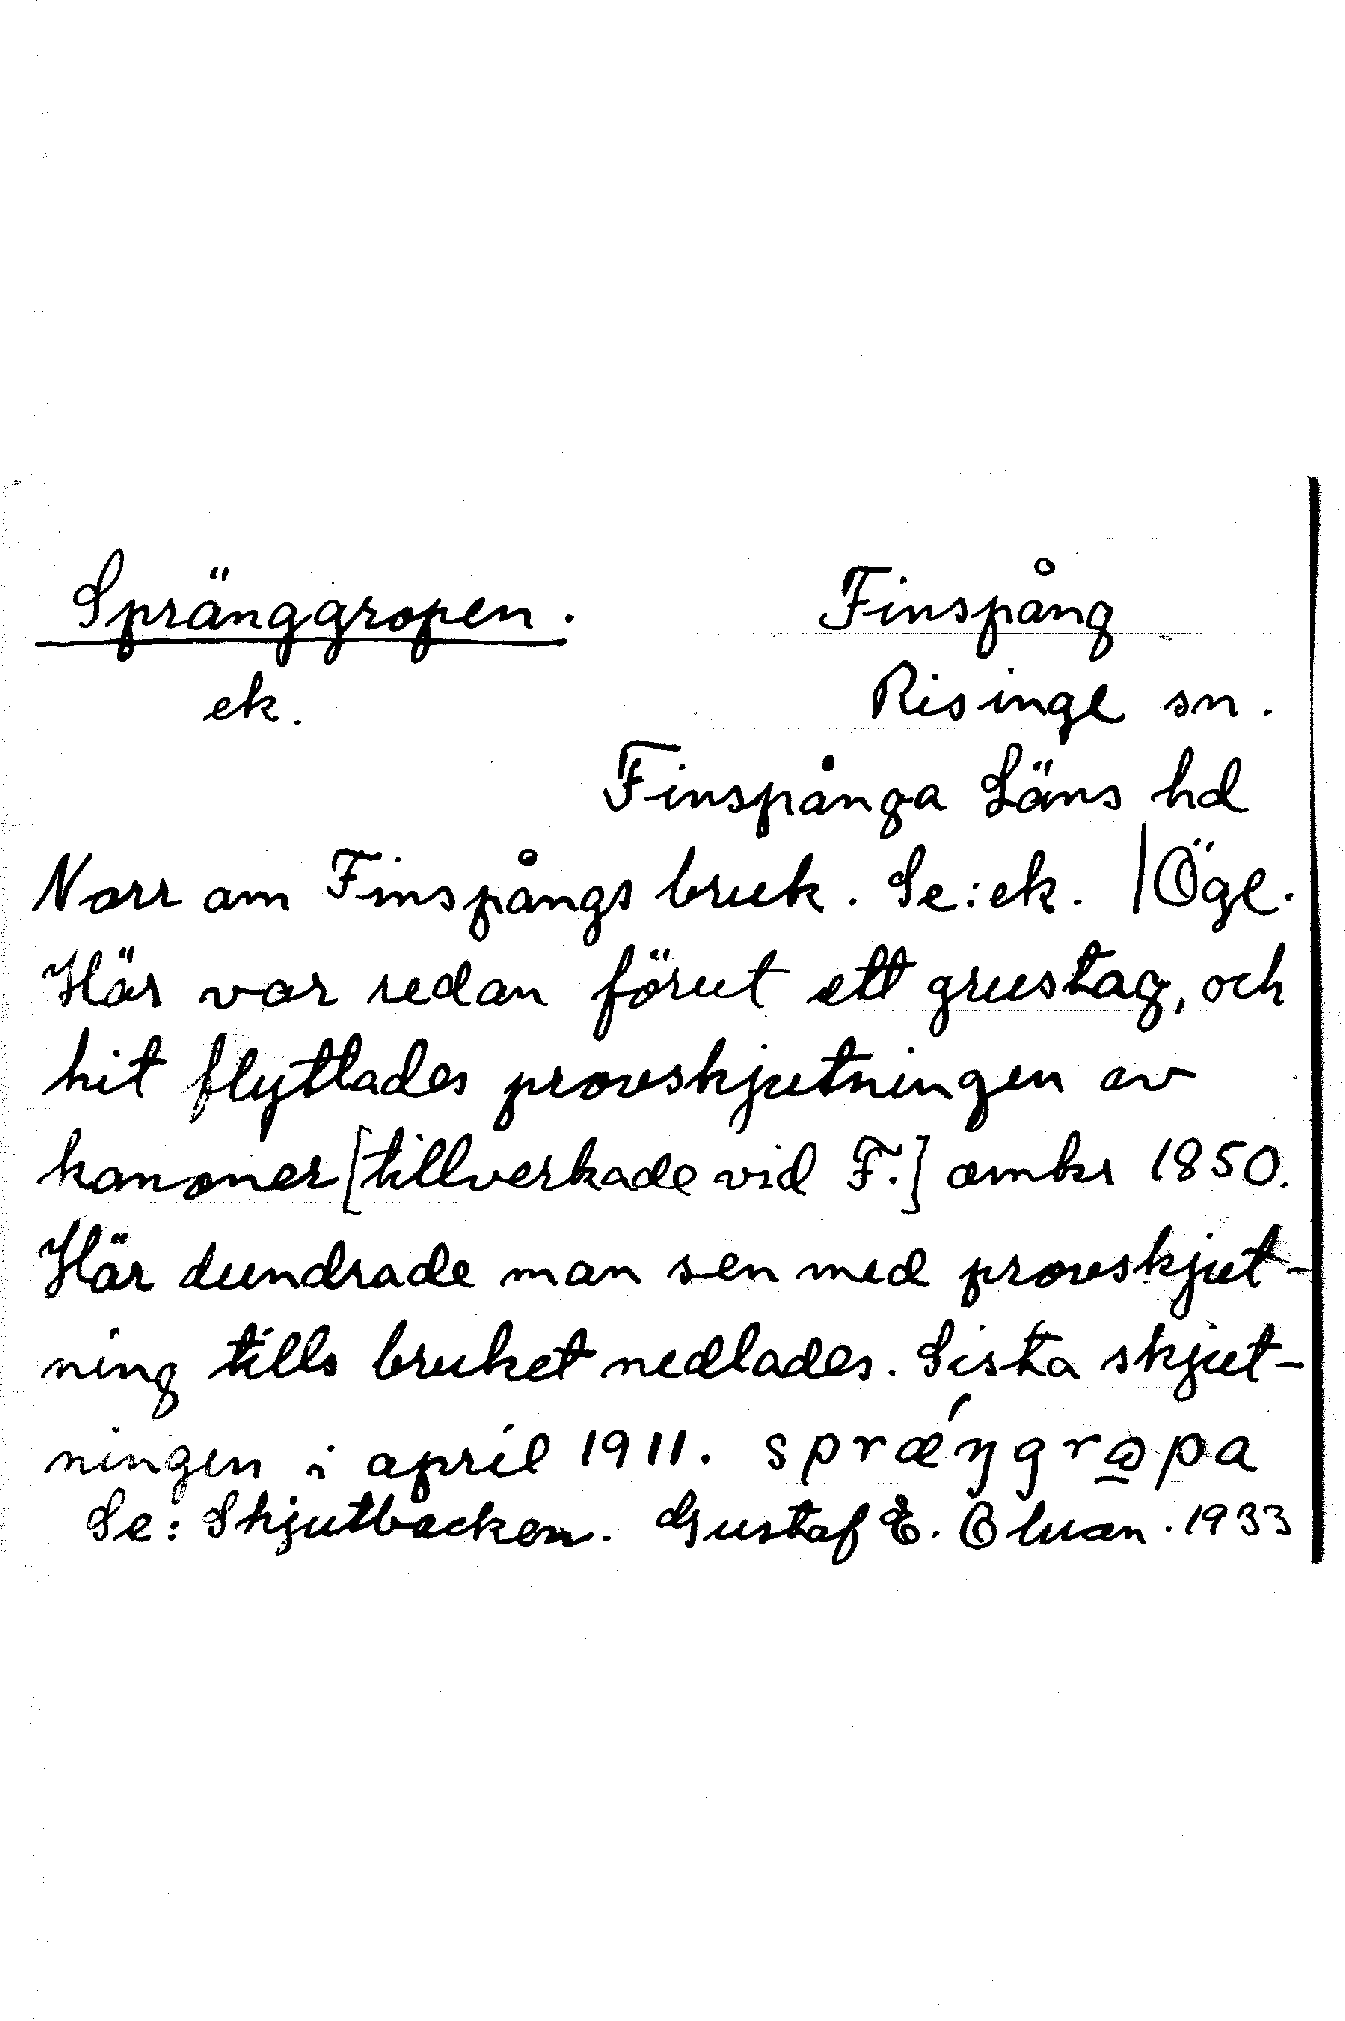 Spränggropen. Finspång
ek. Risinge sn.
Finspånga Läns hd
Norr om Finspångs bruk. Se: ek. | Ögl.
Här var redan förut ett grustag, och
hit flyttades provskjutningen av
kanoner [tillverkade vid F.] omkr 1850.
Här dundrade man sen med provskjut-
ning tills bruket nedlades. Sista skjut-
ningen i april 1911. sprǽŋgropa
Se: Skjutbacken. Gustaf E. 1933